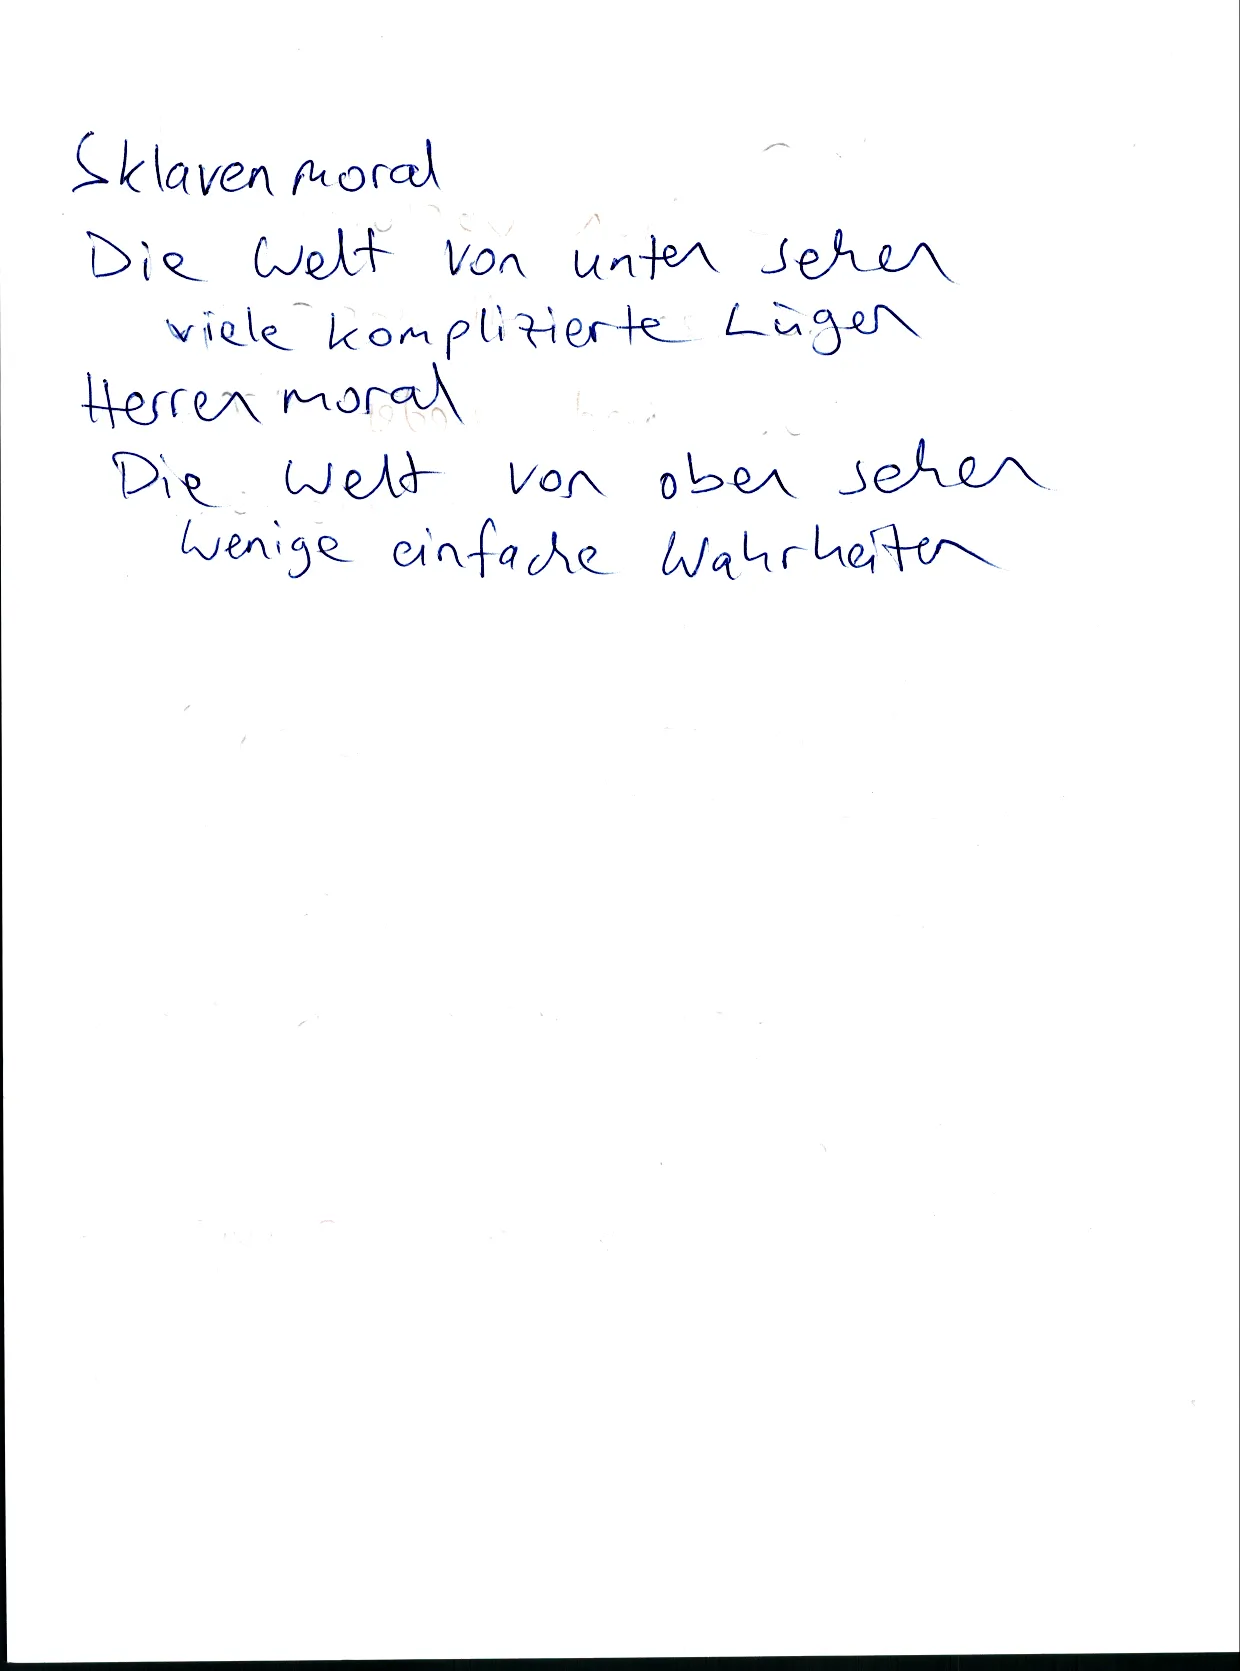 Sklavenmoral
Die Welt von unten sehen
viele komplizierte Lügen
Herrenmoral
Die Welt von oben sehen
wenige einfache Wahrheiten